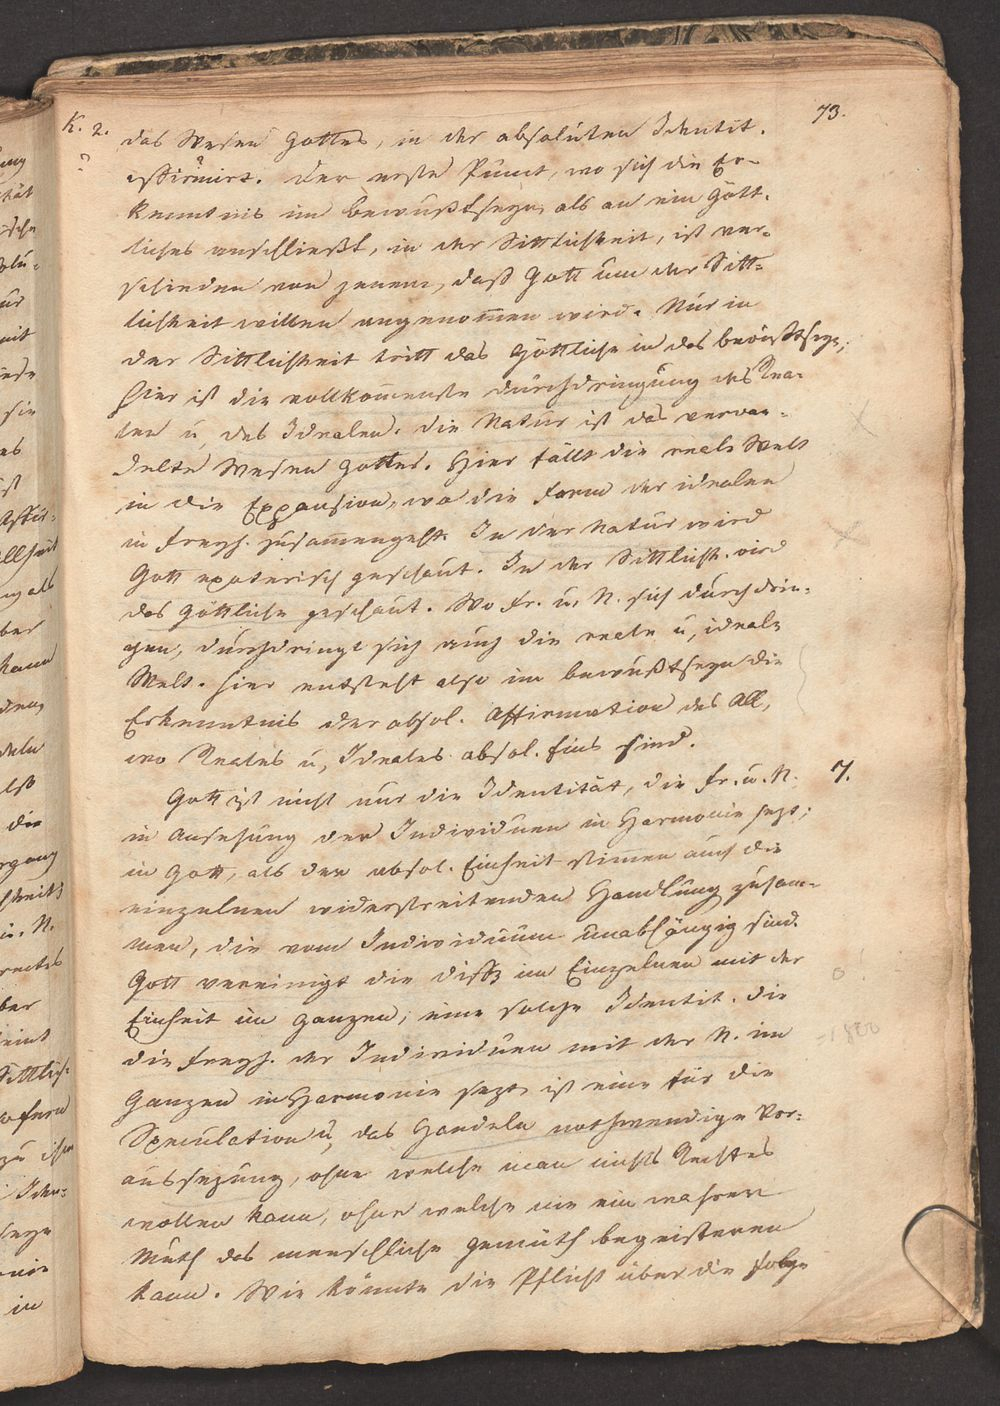 73.
K. 2.
das Wesen Gottes, in der absoluten Identit.
? affirmirt. Der erste Punct, wo sich die Er-
kenntnis im Bewußtseyn, als an ein Gött-
liches anschließt, in der Sittlichkeit, ist ver-
schieden von jenem, daß Gott um der Sitt-
lichkeit willen angenom̅en wird. Nur in
der Sittlichkeit tritt das Göttliche in das Bewußtseyn;
hier ist die vollkom̅enste Durchdringung des Rea-
len u. des Idealen. Die Natur ist das verwan-
delte Wesen Gottes. Hier fällt die reale Welt
in die Expansion, wo die Form der idealen
in Freyh. zusammengeht. In der Natur wird
Gott exoterisch geschaut. In der Sittlichk. wird
das Göttliche geschaut. Wo Fr. u. N. sich durchdrin-
gen, durchdringt sich auch die reale u. ideale
Welt. Hier entsteht also im Bewußtseyn die
Erkenntnis der absol. Affirmation des All,
wo Reales u. Ideales absol. Eins sind.
Gott ist nicht nur die Identität, die Fr. u. N. 7.
in Ansehung der Individuen in Harmonie sezt;
in Gott, als der absol. Einheit stim̅en auch die
einzelnen widerstreitenden Handlung zusam-
men, die vom Individuum unabhängig sind.
Gott vereinigt die Diffz im Einzelnen mit der
Einheit im Ganzen; eine solche Identit. die
die Freyh. der Individuen mit der N. im
Ganzen in Harmonie sezt, ist eine für die
Speculation u. das Handeln nothwendige Vor-
aussezung, ohne welche man nichts Rechtes
wollen kann, ohne welche nie ein wahrer
Muth das menschliche Gemüth begeisteren
kann. Wie könnte die Pflicht über die Folge